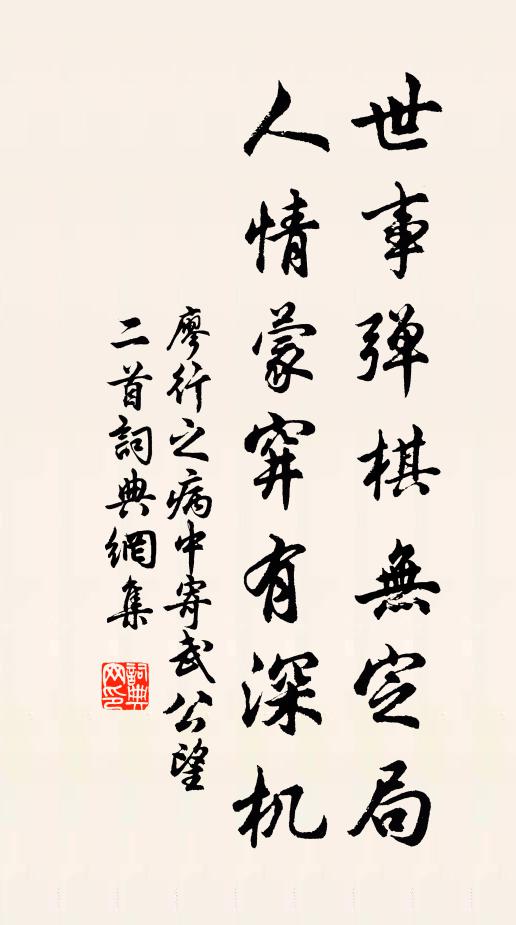 世事弹棋無定局
人情蒙穽有深机
廖行之病中寄武公望
二首詞典網集
詞典網印